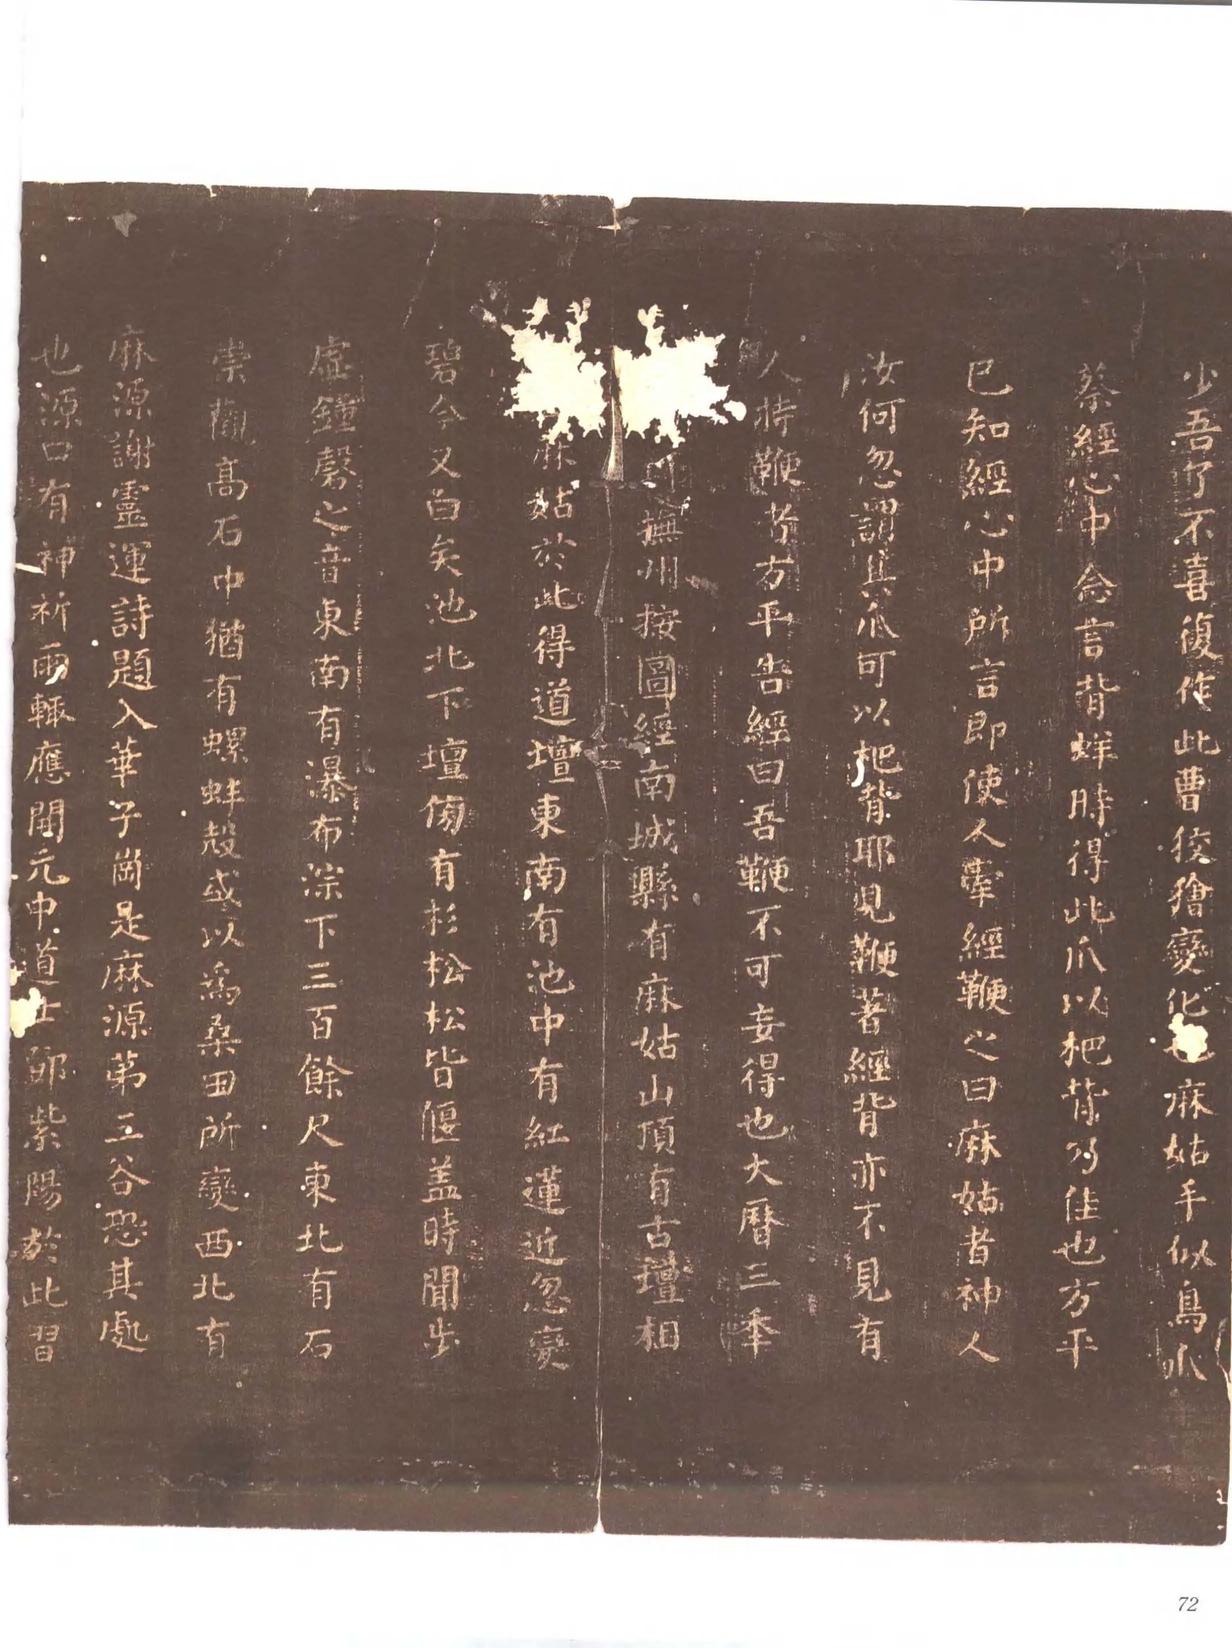 少吾了不喜復作此曹狡獪變化也麻姑手似鳥爪
蔡經心中念言背蛘時得此爪以杷背乃佳也方平
已知經心中所言即使人牽經鞭之曰麻姑者神人
汝何忽謂其爪可以杷背耶見鞭著經背亦不見有
人持鞭者方平告經曰吾鞭不可妄得也大曆三年
撫州按圖經南城縣有麻姑山頂有古壇相
麻姑於此得道壇東南有池中有紅蓮近忽變
碧今又白矣池北下壇傍有杉松松皆偃蓋時聞步
虛鍾磬之音東南有瀑布淙下三百餘尺東北有石
崇觀高石中猶有螺蚌殼或以爲桑田所變西北有
麻源謝靈運詩題入華子崗是麻源第三谷恐其處
也源口有神祈雨輒應開元中道士鄧紫陽於此習
72